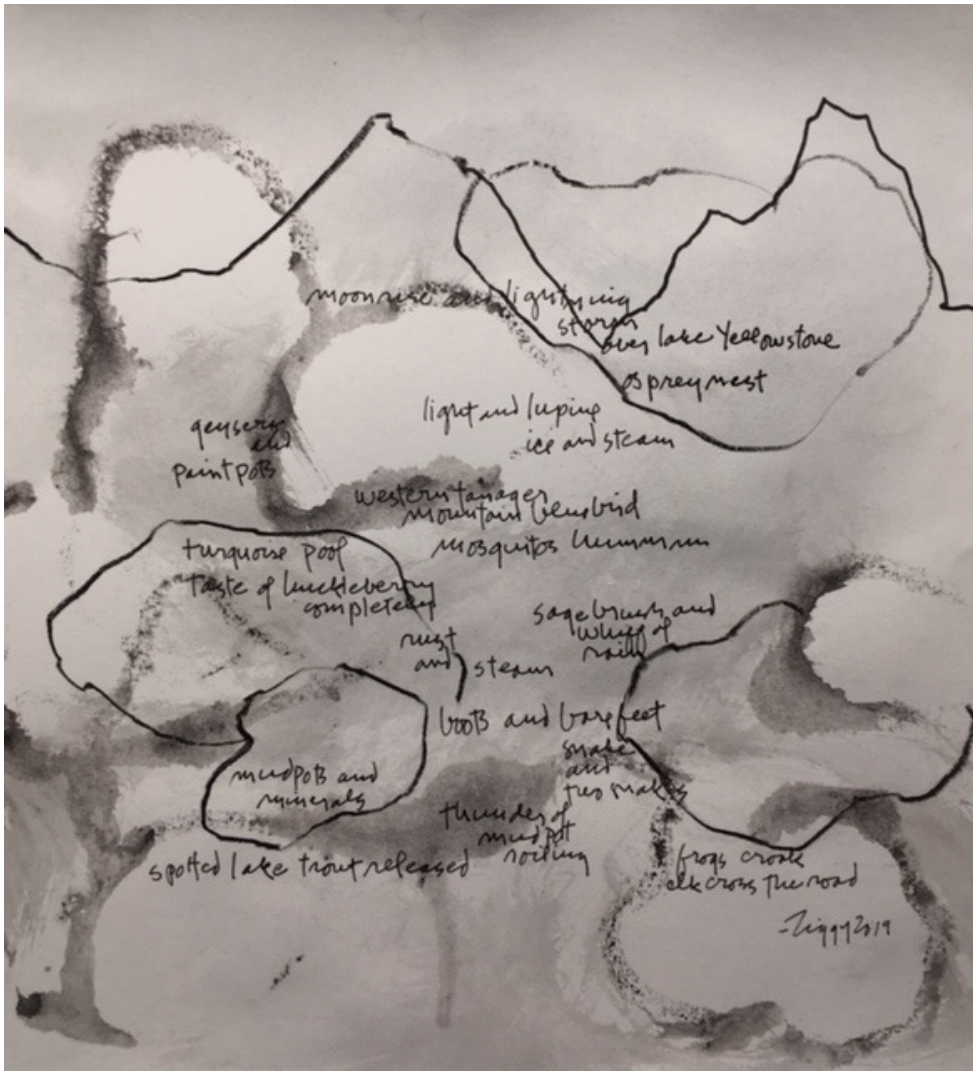 moonrise and lightning
storm
over lake Yellowstone
osprey nest
light and lupine
ice and steam
geysers
and
paint pots
western tanager
mountain bluebird
mosquitos hummmm
turquoise pool
taste of huckleberry
completely
rust
and steam
sagebrush and
whiff of
rain
boots and bare feet
snake
and
two snakes
mudpots and
minerals
thunder of
mudpot
roiling
spotted lake trout released
frogs croak
elk cross the road
-Ziggy 2019